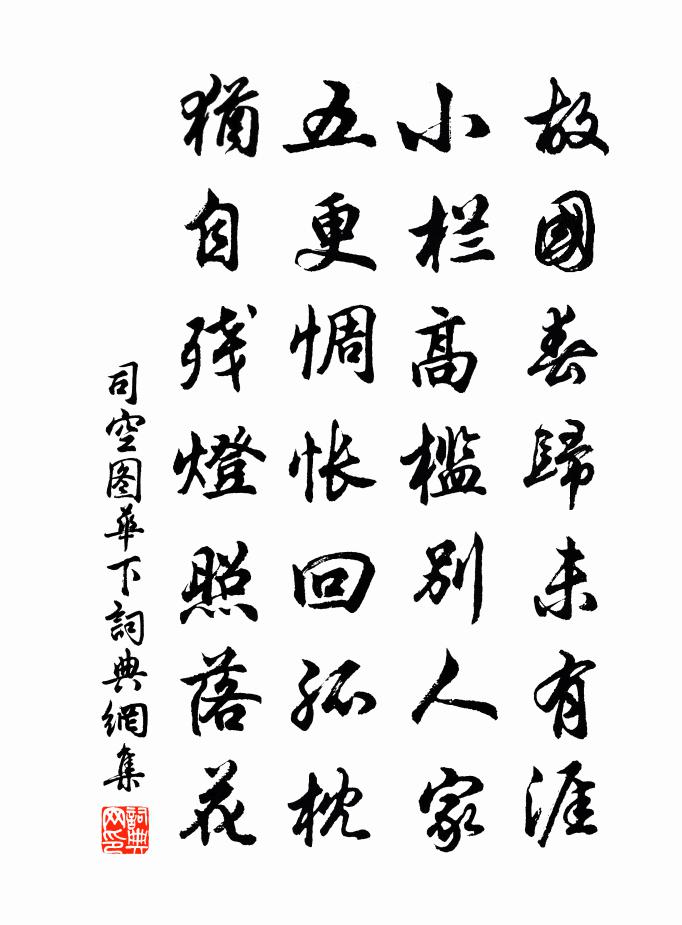 故國春歸未有涯
小栏高槛别人家
五更惆怅回孤枕
猶自残燈照落花
司空图華下詞典網集
詞典网印